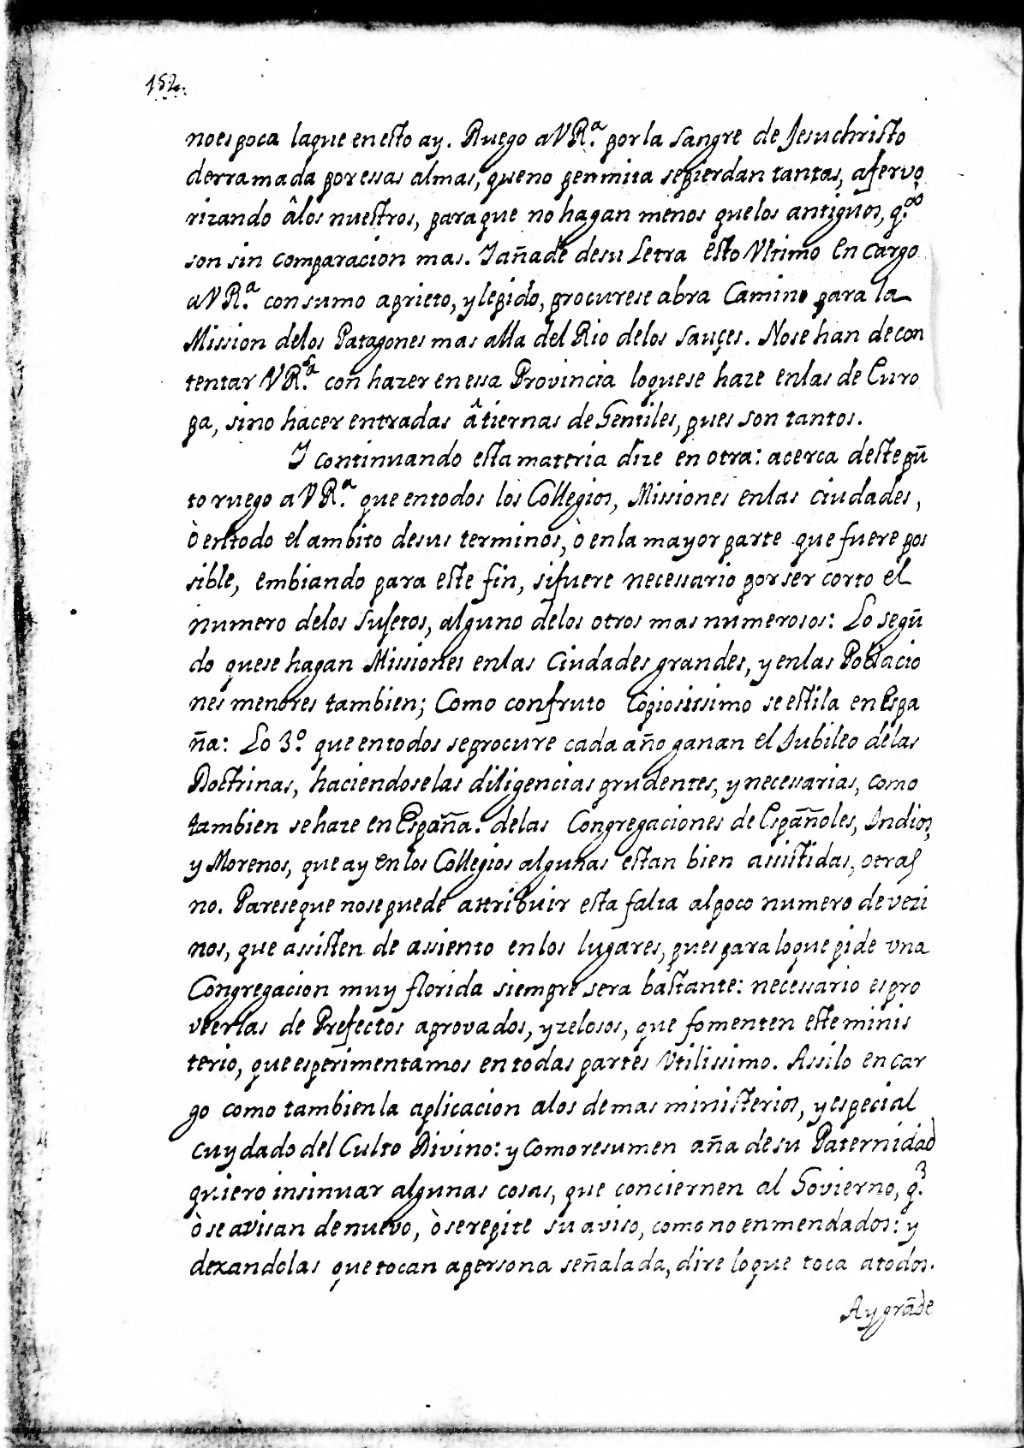 152.
no es poca la que en esto ay. Ruego a VRª. por la sangre de Jesuchristo
derramada por essas almas, que no permita se pierdan tantas, afervo
rizando âlos nuestros, para que no hagan menos que los antiguos, q.do
son sin comparacion mas. I añade de su Letra esto Vltimo Encargo
a VRª. con sumo aprieto, y le pido, procurese abra Camino para la
Mission delos Patagones mas alla del Rio delos Sauçes. No se han de con
tentar VRªs. con hazer en essa Provincia lo que se haze en las de Euro
pa, sino hacer entradas â tierras de Gentiles, pues son tantos.
I continuando esta materia dize en otra: acerca deste pũ
to ruego a VRª. que en todos los Collegios, Missiones en las ciudades,
ò en todo el ambito de sus terminos, ò en la mayor parte que fuere pos
sible, embiando para este fin, si fuere necessario por ser corto el
numero delos sujetos, alguno delos otros mas numerosos: Lo segũ
do que se hagan Missiones en las Ciudades grandes, y en las Poblacio
nes menores tambien; Como con fruto Copiosissimo se estila en Espa
ña: Lo 3º. que en todos se procure cada año ganan el Jubileo de las
Doctrinas, haciendose las diligencias prudentes, y necessarias, como
tambien se haze en España. de las Congregaciones de Españoles, Indios,
y Morenos, que ay en los Collegios algunas estan bien assistidas, otras
no. Parese que no se puede attribuir esta falta al poco numero de vezi
nos, que assisten de assiento en los lugares, pues para lo que pide vna
Congregacion muy florida siempre sera bastante: necessario es pro
veerlas de Prefectos aprovados, y zelosos, que fomenten este minis
terio, que esperimentamos en todas partes Vtilissimo. Assi lo encar
go como tambien la aplicacion a los demas ministerios, y especial
cuydado del Culto Divino: y como resumen aña de su Paternidad
quiero insinuar algunas cosas, que conciernen al Govierno, q.e
ò se avisan de nuevo, ò se repite su aviso, como no enmendados: y
dexandolas que tocan a persona señalada, dire lo que toca a todos.
Ay grãde